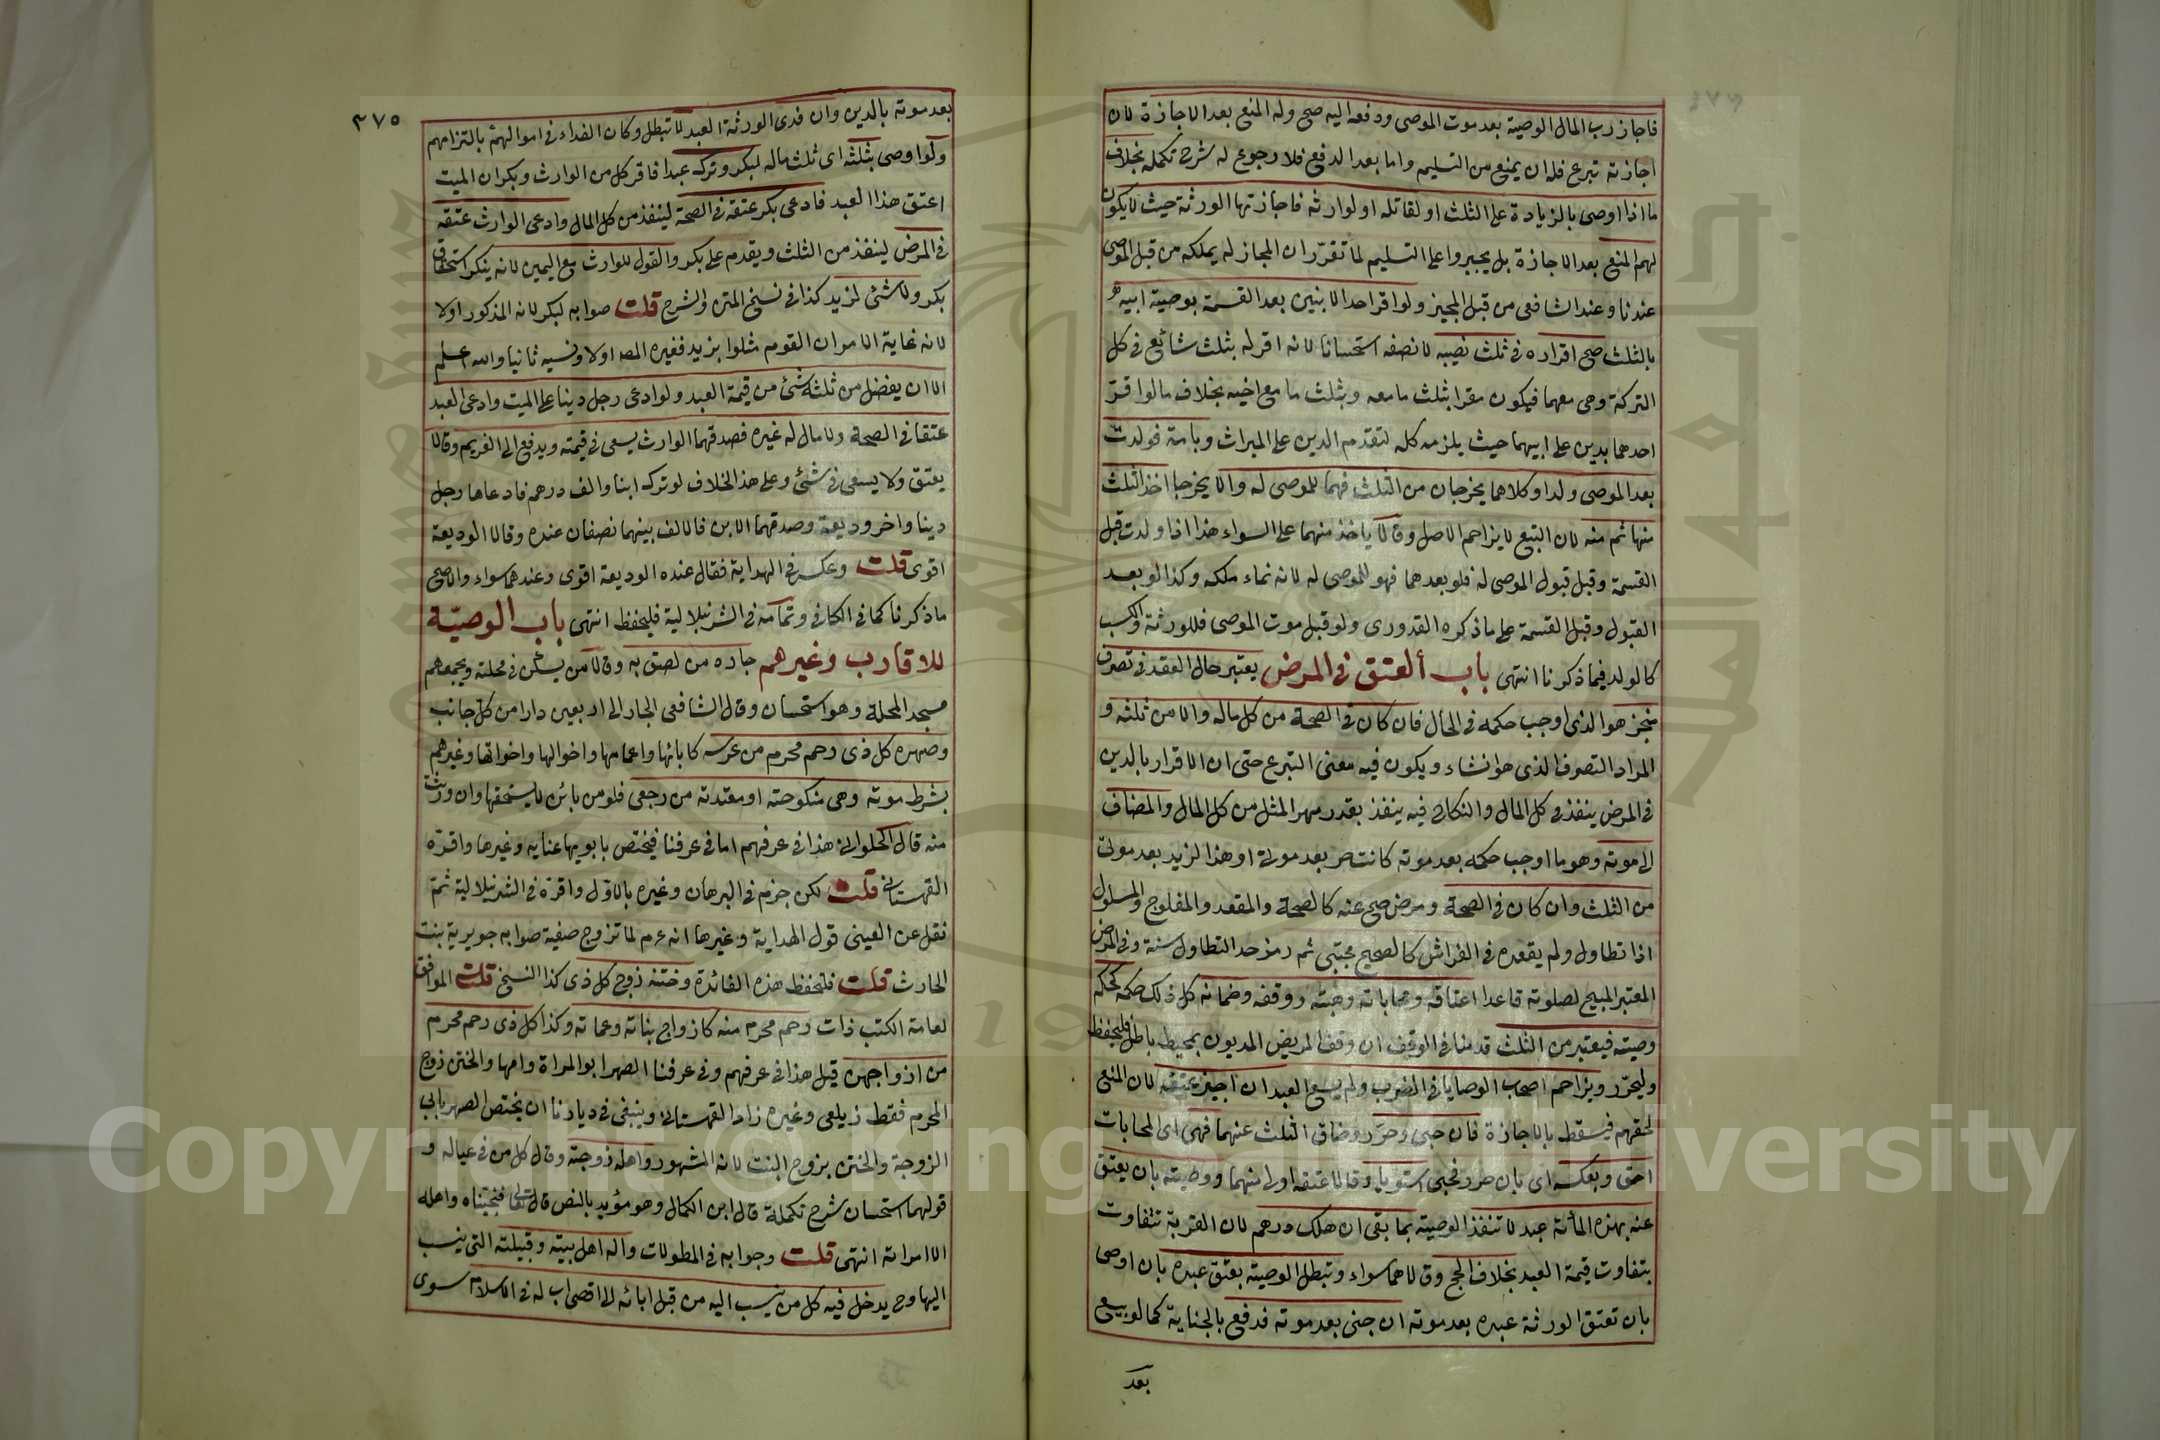 فاجاز رب المال الوصية بعد موت الموصى ودفعه اليه صح وله المنع بعد الاجازة لان
اجازته تبرع فله ان يمنع من التسليم واما بعد الدفع فلا رجوع له شرح تكمله بخلاف
ما اذا اوصى بالزيادة على الثلث او لقاتله او لوارثه فاجازتها الورثة حيث لا يكون
لهم المنع بعد الاجازة بل يجبروا على التسليم لما تقرر ان المجاز له يملكه من قبل الموصى
عندنا وعند الشافعى من قبل المجيز ولو اقر احد الابنين بعد القسمة بوصية ابيه
بالثلث صح اقراره فى ثلث نصيبه لا نصفه استحسانا لانه اقر له بثلث شائع فى كل
التركة وهى معهما فيكون مقرا بثلث ما معه وبثلث ما مع اخيه بخلاف ما لو اقر
احدهما بدين على ابيهما حيث يلزمه كله لتقدم الدين على الميراث وبامة فولدت
بعد الموصى ولدا وكلاهما يخرجان من الثلث فهما للموصى له والا يخرجا اخذ الثلث
منها ثم منه لان التبع لا يزاحم الاصل وقالا ياخذ منهما على السواء هذا اذا ولدت قبل
القسمة وقبل قبول الموصى له فلو بعدهما فهو للموصى له لانه نماء ملكه وكذا لو بعد
القبول وقبل القسمة على ما ذكره القدورى ولو قبل موت الموصى فللورثة والكسب
كالولد فيما ذكرنا انتهى باب العتق فى المرض يعتبر حال العقد فى تصرف
منجز هو الذى اوجب حكمه فى الحال فان كان فى الصحة من كل ماله والا من ثلثه و
المراد التصرف الذى هو انشاء ويكون فيه معنى التبرع حتى ان الاقرار بالدين
فى المرض ينفذ فى كل المال والنكاح فيه ينفذ بقدر مهر المثل من كل المال والمضاف
الى موته وهو ما اوجب حكمه بعد موته كانت حر بعد موتى او هذا لزيد بعد موتى
من الثلث وان كان فى الصحة ومرض صح عنه كالصحة والمقعد والمفلوج والمسلول
اذا تطاول ولم يقعده فى الفراش كالصحيح مجتبى ثم رمز حد التطاول سنة وفى المرض
المعتبر المبيح لصلوته قاعدا اعتاقه ومحاباته وهبته ووقفه وضمانه كل ذلك حكمه كحكم
وصيته فيعتبر من الثلث قدمنا فى الوقف ان وقف المريض المديون بمحيط باطل فليحفظ
وليحرر ويزاحم اصحاب الوصايا فى الضرب ولم يسع العبد ان اجيز عتقه لان المنع
لحقهم فيسقط بالاجازة فان حبى وحرر وضاق الثلث عنهما فهى اى المحابات
احق وبعكسه اى بان حرر فحبى استويا وقالا عتقه اولى منهما ووصيته بان يعتق
عنه بهذه المائة عبد لا تنفذ الوصية بما بقى ان هلك درهم لان القربة تتفاوت
بتفاوت قيمة العبد بخلاف الحج وقالا هما سواء وتبطل الوصية بعتق عبده بان اوصى
بان تعتق الورثة عبده بعد موته ان جنى بعد موته فدفع بالجناية كما لو بيع
بعد
٣٧٥
بعد موته بالدين وان فدى الورثة العبد لا تبطل وكان الفداء فى اموالهم بالتزامهم
ولو اوصى بثلثه اى ثلث ماله لبكر وترك عبدا فاقر كل من الوارث وبكر ان الميت
اعتق هذا العبد فادعى بكر عتقه فى الصحة لينفذ من كل المال وادعى الوارث عتقه
فى المرض لينفذ من الثلث ويقدم على بكر والقول للوارث مع اليمين لانه ينكر استحقاق
بكر ولا شئ لزيد كذا فى نسخ المتن والشرح قلت صوابه لبكر لانه المذكور اولا
لانه غاية الامر ان القوم مثلوا بزيد فغيره المص اولا ونسيه ثانيا والله اعلم
الا ان يفضل من ثلثه شئ من قيمة العبد ولو ادعى رجل دينا على الميت وادعى العبد
عتقا فى الصحة ولا مال له غيره فصدقهما الوارث يسعى فى قيمته ويدفع الى الغريم وقالا
يعتق ولا يسعى فى شئ وعلى هذا الخلاف لو ترك ابنا والف درهم فادعاها رجل
دينا واخر وديعة وصدقهما الابن فالالف بينهما نصفان عنده وقالا الوديعة
اقوى قلت وعكس فى الهداية فقال عنده الوديعة اقوى وعندهما سواء والاصح
ما ذكرنا كما فى الكافى وتمامه فى الشرنبلالية فليحفظ انتهى باب الوصية
للاقارب وغيرهم جاره من لصق به وقالا من يسكن فى محلته ويجمعهم
مسجد المحلة وهو استحسان وقال الشافعى الجار الى اربعين دارا من كل جانب
وصهره كل ذى رحم محرم من عرسه كابائها واعمامها واخوالها واخواتها وغيرهم
بشرط موته وهى منكوحته او معتدته من رجعى فلو من بائن لا يستحقها وان ورثت
منه قال الحلوانى هذا فى عرفهم اما فى عرفنا فيختص بابويها عنايه وغيرها واقره
القهستانى قلت لكن جزم فى البرهان وغيره بالاول واقره فى الشرنبلالية ثم
نقل عن العينى قول الهداية وغيرها انه ءم لما تزوج صفية صوابه جويرية بنت
الحارث قلت فلتحفظ هذه الفائدة وختنه زوج كل ذى كذا النسخ قلت الموافق
لعامة الكتب ذات رحم محرم منه كازواج بناته وعماته وكذا كل ذى رحم محرم
من ازواجهن قيل هذا فى عرفهم وفى عرفنا الصهر ابو المراة وامها والختن زوج
المحرم فقط زيلعى وغيره زاد القهستانى وينبغى فى ديارنا ان يختص الصهر بابى
الزوجة والختن بزوج البنت لانه المشهور واهله زوجته وقال كل من فى عياله و
قولهما استحسان شرح تكملة قال ابن الكمال وهو مؤيد بالنص قال تعالى فنجيناه واهله
الا امراته انتهى قلت وجوابه فى المطولات واله اهل بيته وقبيلته التى ينسب
اليها وح يدخل فيه كل من ينسب اليه من قبل ابائه الى اقصى اب له فى الاسلام سوى
Copyright © King Saud University